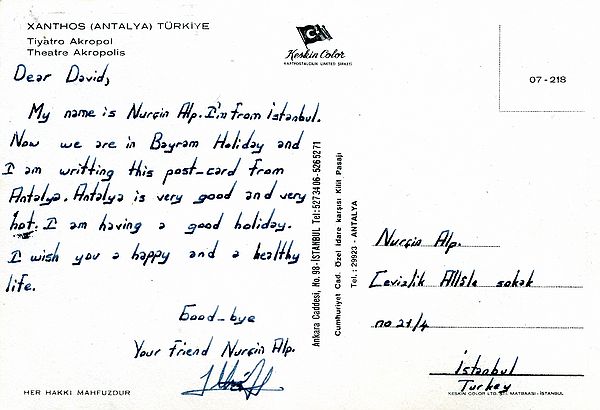 XANTHOS (ANTALYA) TÜRKİYE
Tiyatro Akropol
Theatre Akropolis
Keskin Color
KARTPOSTALCILIK LIMITED ŞİRKETİ
07-218
Dear David,
My name is Nurçin Alp. I'm from İstanbul.
Now we are in Bayram Holiday and
I am writting this post-card from
Antalya. Antalya is very good and very
hot. I am having a good holiday.
I wish you a happy and a healthy
life.
Good-bye
Your friend Nurçin Alp.
HER HAKKI MAHFUZDUR
Ankara Caddesi, No. 98 - İSTANBUL Tel: 5273406-5265271
Cumhuriyet Cad. Özel İdare karşısı Kilit Pasajı
Tel.: 29923 - ANTALYA
Nurçin Alp.
Cevizlik sokak
no 21/4
İstanbul
Turkey
KESKIN COLOR LTD. ŞTİ. MATBAASI - İSTANBUL